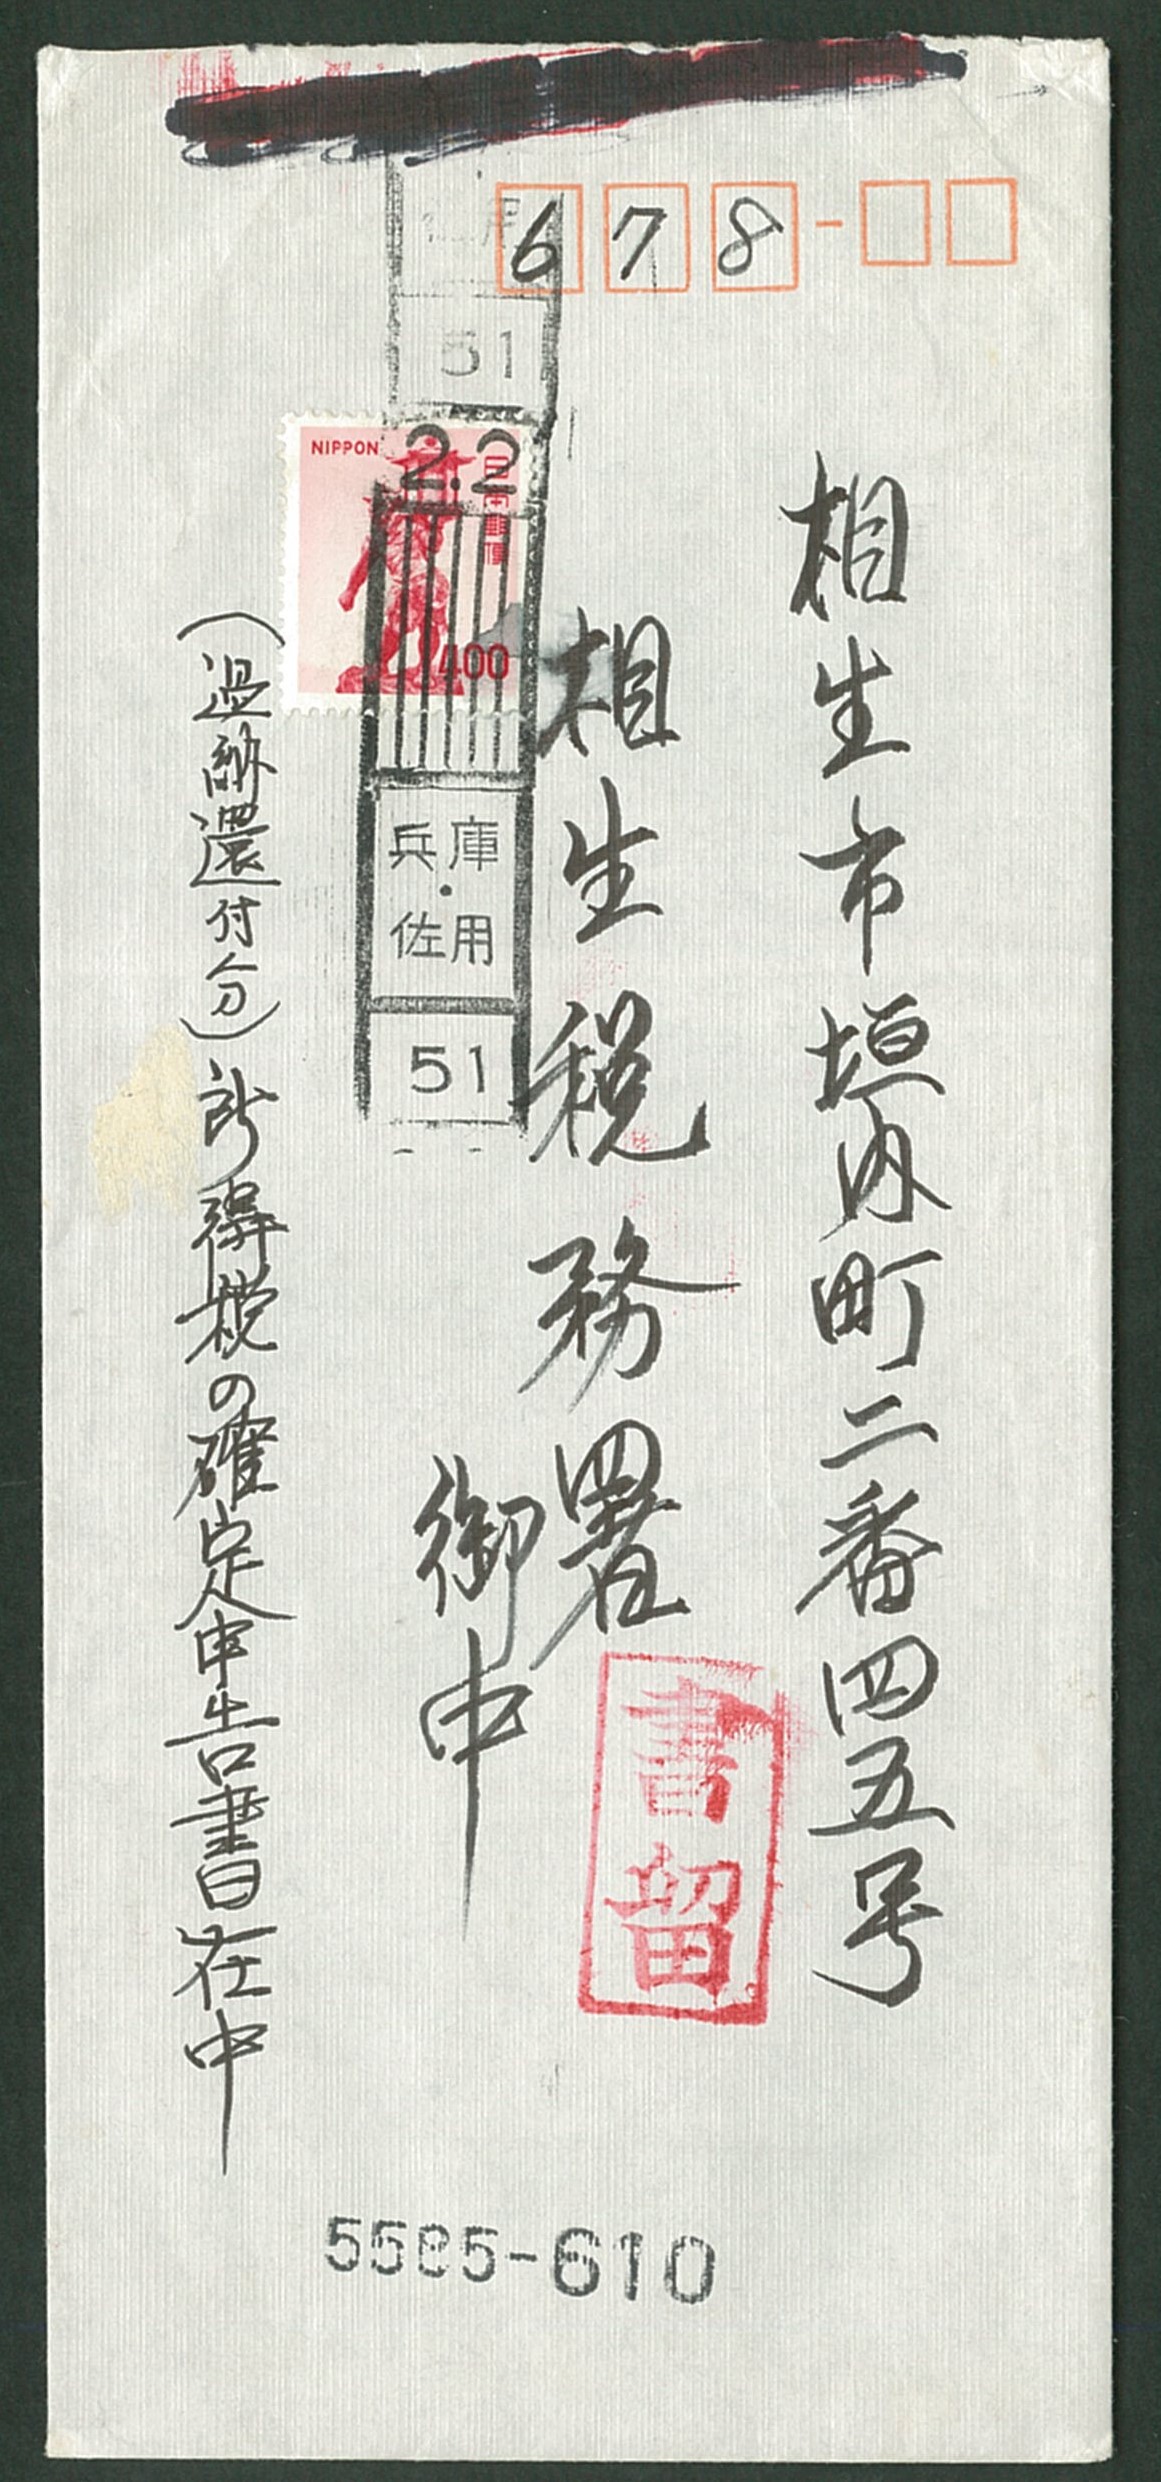 678
相生市垣内町二番四五号
相生税務署
御中
(過納還付分)所得税の確定申告書在中
書留
NIPPON
日本郵便
400
51
2.2
兵庫・佐用
51
-610